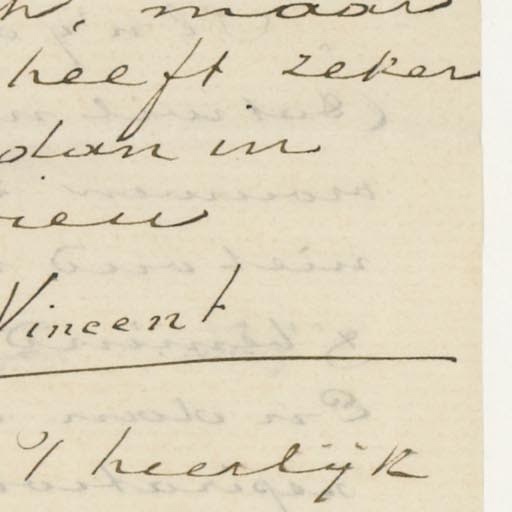 maar
heeft zeker
dan in
Vincent
't heerlijk